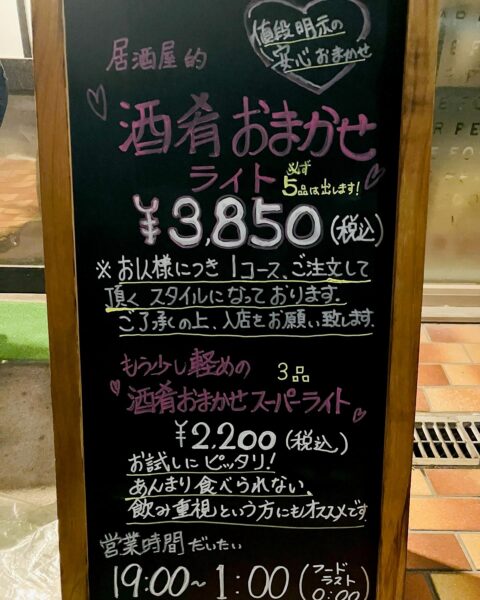 値段明示の
安心おまかせ
居酒屋的
酒肴おまかせ
ライト
必ず
5品は出します!
¥3,850(税込)
※お1人様につき1コース、ご注文して
頂くスタイルになっております。
ご了承の上、入店をお願い致します。
もう少し軽めの
3品
酒肴おまかせスーパーライト
¥2,200(税込)
お試しにピッタリ!
あんまり食べられない、
飲み重視という方にもオススメです
営業時間だいたい
19:00~1:00(フード
ラスト
0:00)